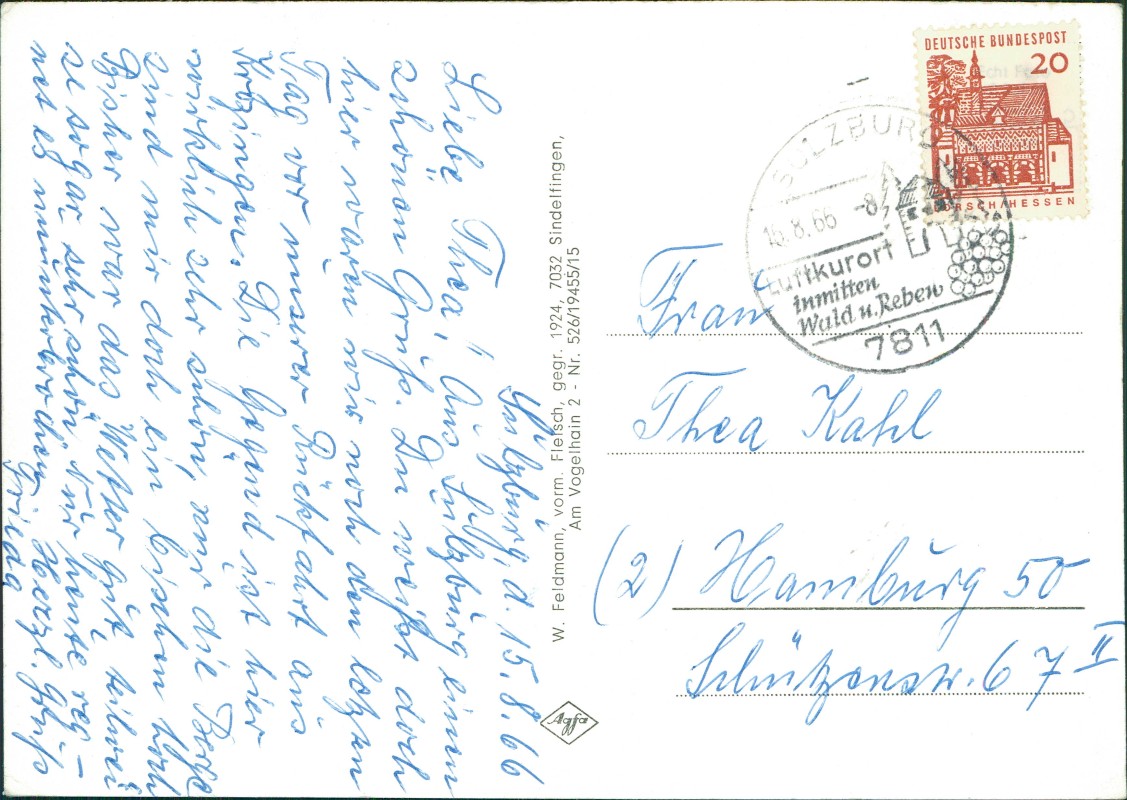 Sulzburg, d. 15.8.66
Liebe Thea, Aus Sulzburg einen
schönen Gruß. Du weißt doch
hier waren wir noch den letzten
Tag vor unserer Rückfahrt aus
Die Gegend ist hier
wirklich sehr schön, nur die Berge
sind mir doch ein bischen hoch
Bisher war das Wetter gut teilwei
se sogar sehr schön. Nur heute reg-
net es ununterbrochen. Herzl. Grüß
Frieda
W. Feldmann, vorm. Fletsch, gegr. 1924, 7032 Sindelfingen,
Am Vogelhain 2 - Nr. 526/19455/15
Agfa
DEUTSCHE BUNDESPOST
20
LORSCH/HESSEN
SULZBURG
16.8.66 -8
Luftkurort
inmitten
Wald u. Reben
7811
Frau
Thea Kahl
(2) Hamburg 50
Schützenstr. 67 II